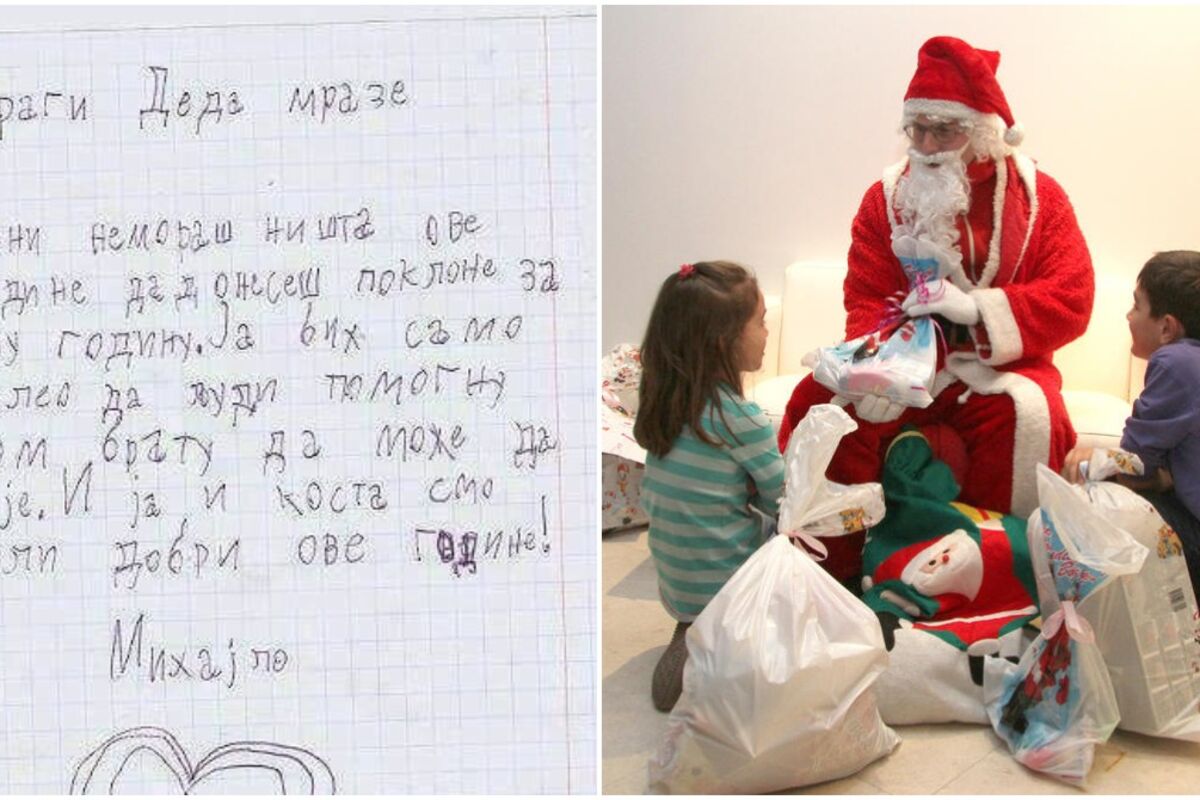 раги Деда мразе
ни немораш ништа ове
дине да донесеш поклоне за
у годину. Ја бих само
лео да људи помогну
ом брату да може да
је. И ја и Коста смо
ли добри ове године!
Михајло